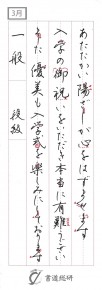 3月
あたたかい陽ざしが心をはずませます
入学の御祝いをいただき本当に有難うござい
ます 優美も入学式を楽しみにしております
一般 後級
書道総研